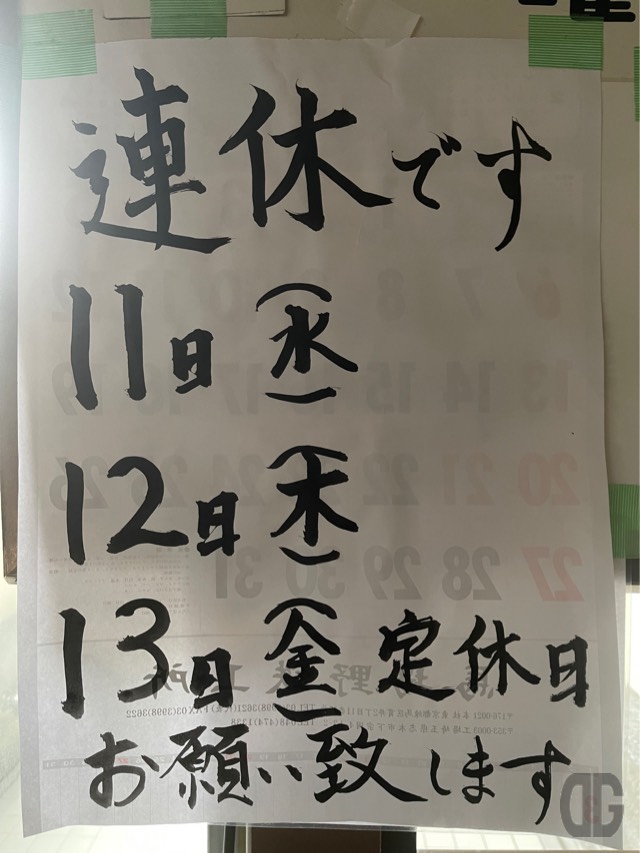 連休です
11日(水)
12日(木)
13日(金)定休日
お願い致します
DG